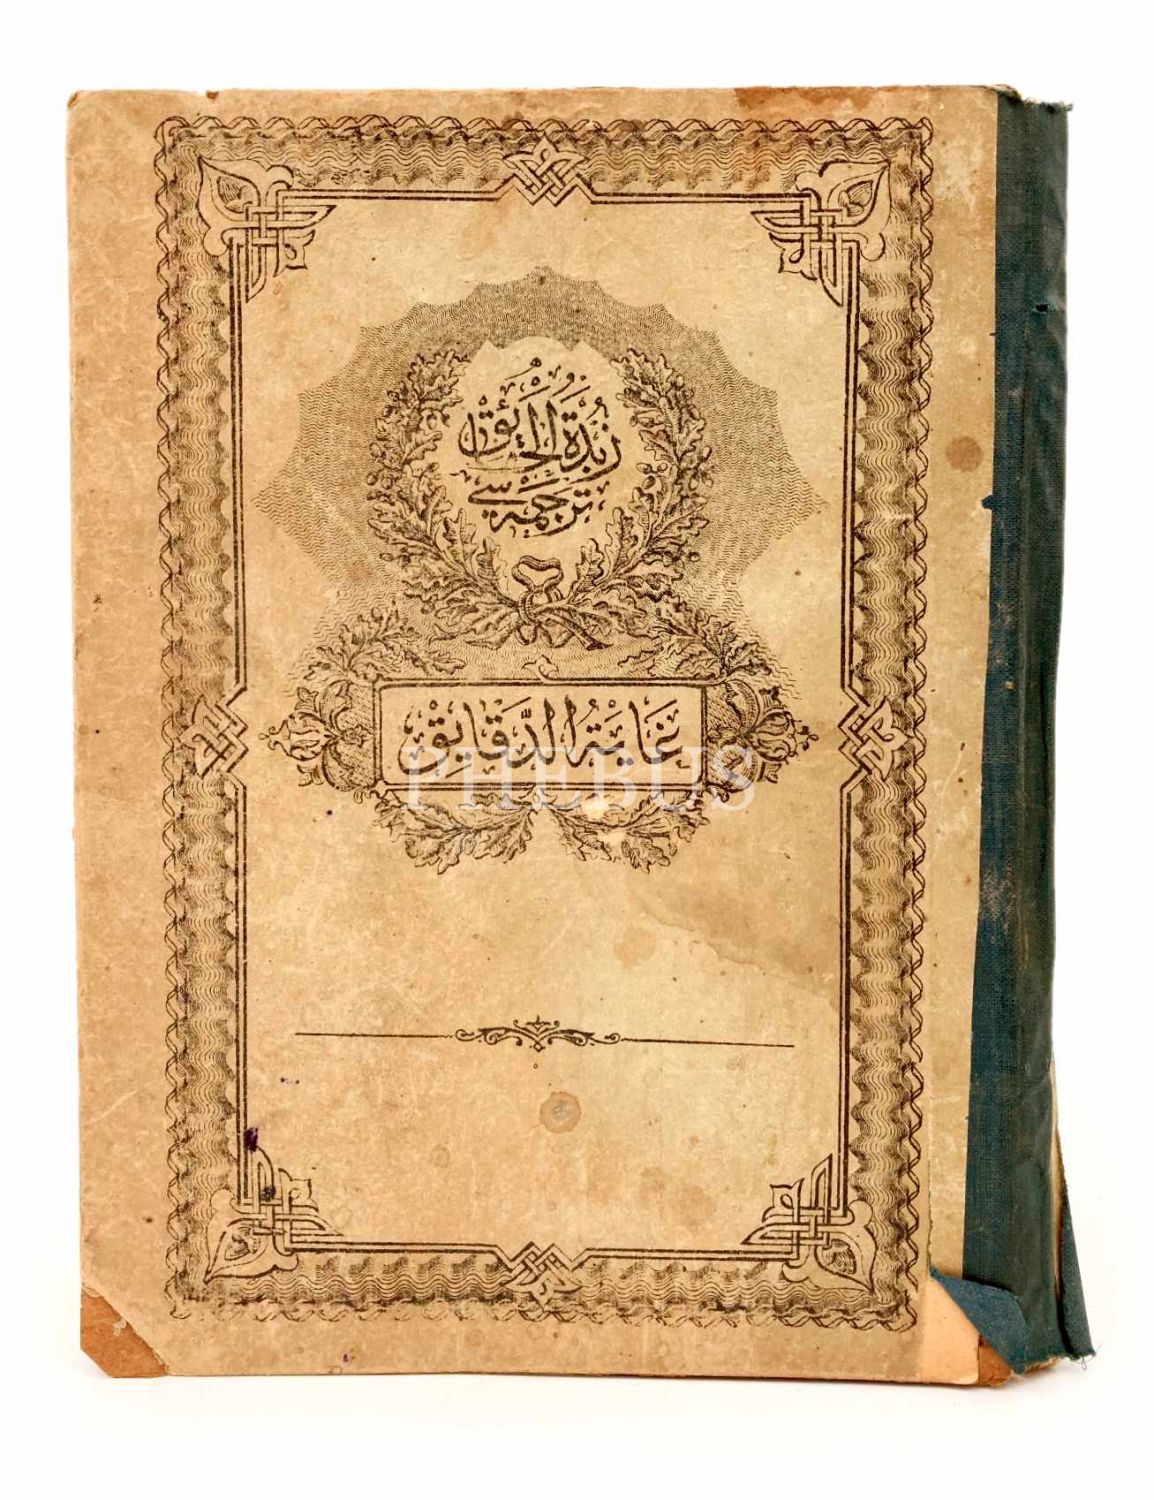 زبدة الحقائق
ترجمه سى
غاية الدقايق
PHEBUS